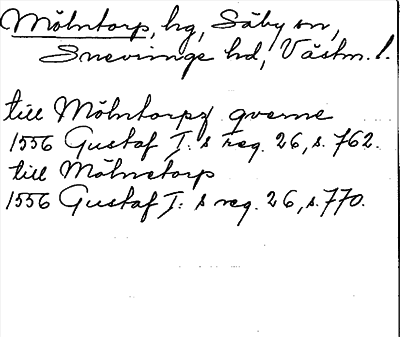 Mölntorp, hg, Säby sn,
Snevringe hd, Västm. l.
till Mölntorps qverne
1556 Gustaf I:s reg. 26, s. 762.
till Mölnetorp
1556 Gustaf I:s reg. 26, s. 770.